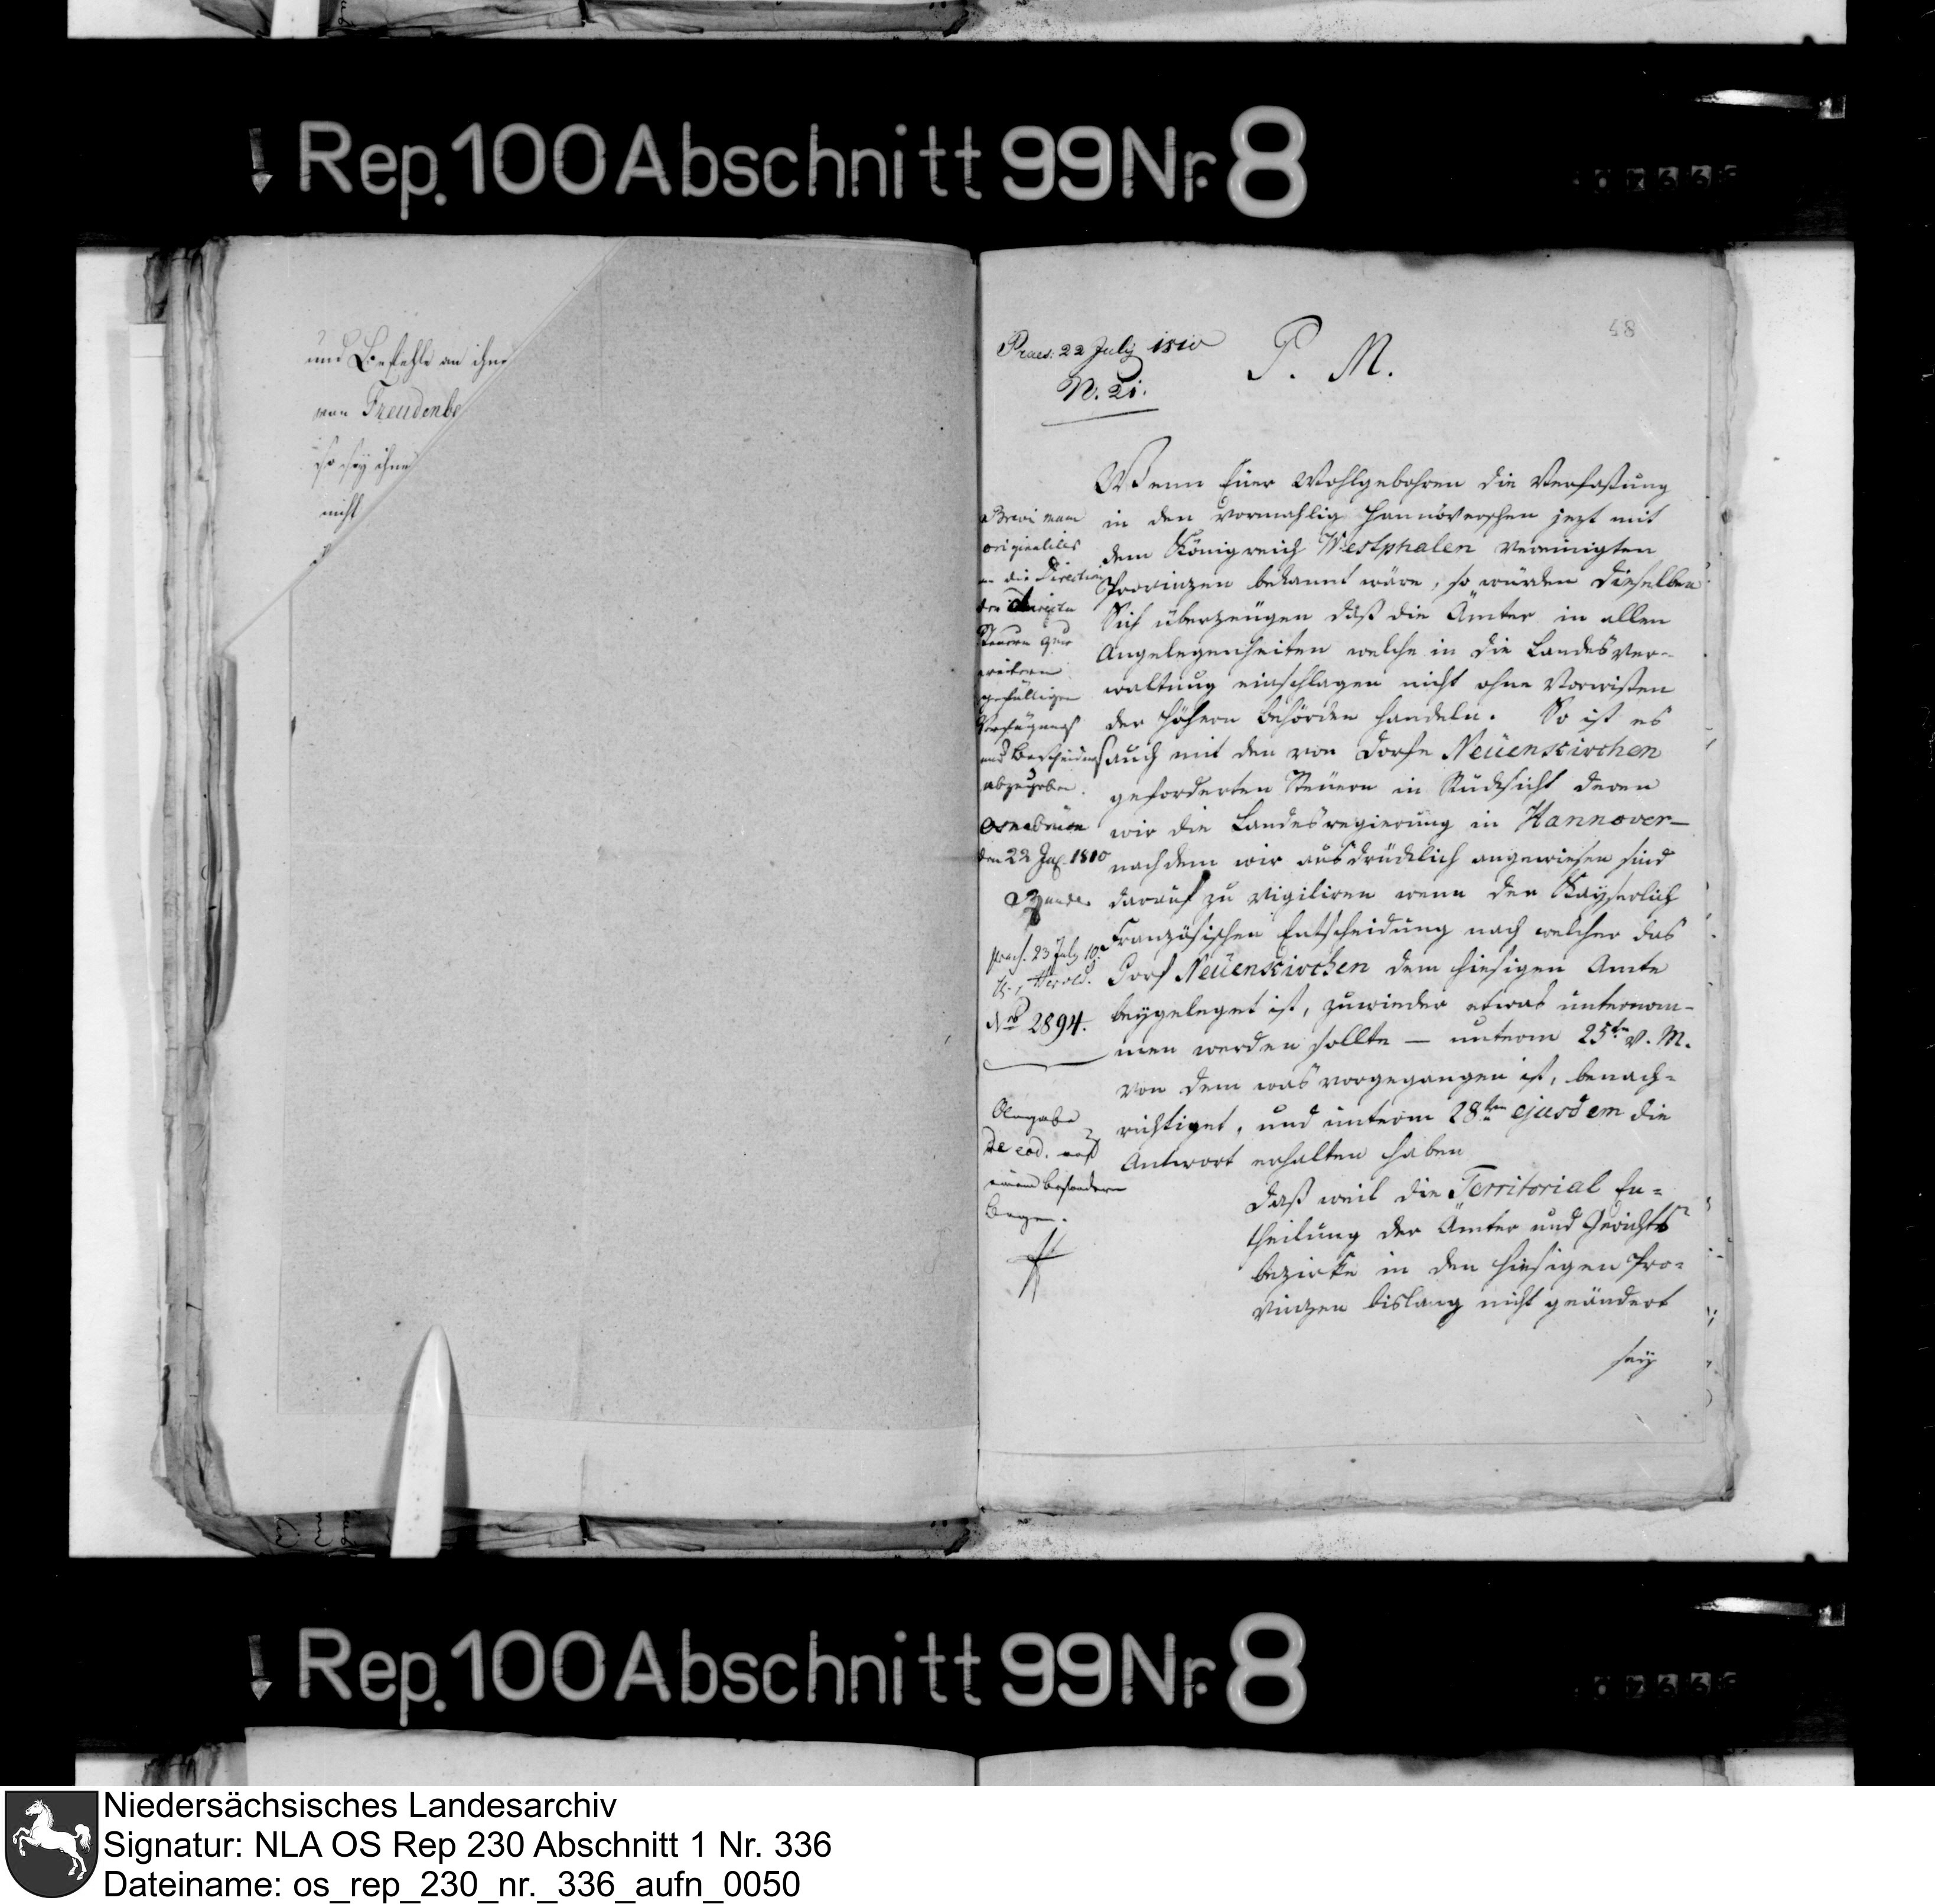 Rep. 100 Abschnitt 99 Nr. 8
und Befehle an ihn
von Freudenbe
so sey ihne
nicht
48
Praes: 22 July 1810
N. 21.
P. M.
Wenn Euer Wohlgebohren die Verfaßung
in den vormahlig Hannöverschen jezt mit
dem Königreich Westphalen vereinigten
Provinzen bekannt wäre, so würden dieselben
Sich überzeugen daß die Ämter in allen
Angelegenheiten welche in die Landesver-
waltung einschlagen nicht ohne Vorwißen
der höhern Behörden handeln. So ist es
auch mit den von Dorfe Neüenkirchen
geforderten Steüern in Rücksicht deren
wir die Landesregierung in Hannover-
nachdem wir ausdrücklich angewiesen sind
darauf zu vigiliren wenn der Kayserlich
Französischen Entscheidung nach welcher das
Dorf Neüenkirchen dem hiesigen Amte
beygeleget ist, zuwieder etwas unternom-
men werden sollte — unterm 25ten v. M.
von dem was vorgegangen ist, benach-
richtiget, und unterm 28ten ejusdem die
Antwort erhalten haben
daß weil die Territorial Ein-
theilung der Ämter und Gerichts
bezirke in den hiesigen Pro-
vinzen bislang nicht geändert
sey
Brevi manu
originaliter
an die Direction
der directen
Steuern zur
weitern
gefälligen
Verfügung
und Bescheidung
abzugeben.
Osnabrück
den 22 Jul. 1810
praes. 23 July 10.
Herold.
Nro 2894.
de eod. auf
einem besondern
Bogen.
Rep. 100 Abschnitt 99 Nr. 8
Niedersächsisches Landesarchiv
Signatur: NLA OS Rep 230 Abschnitt 1 Nr. 336
Dateiname: os_rep_230_nr._336_aufn_0050